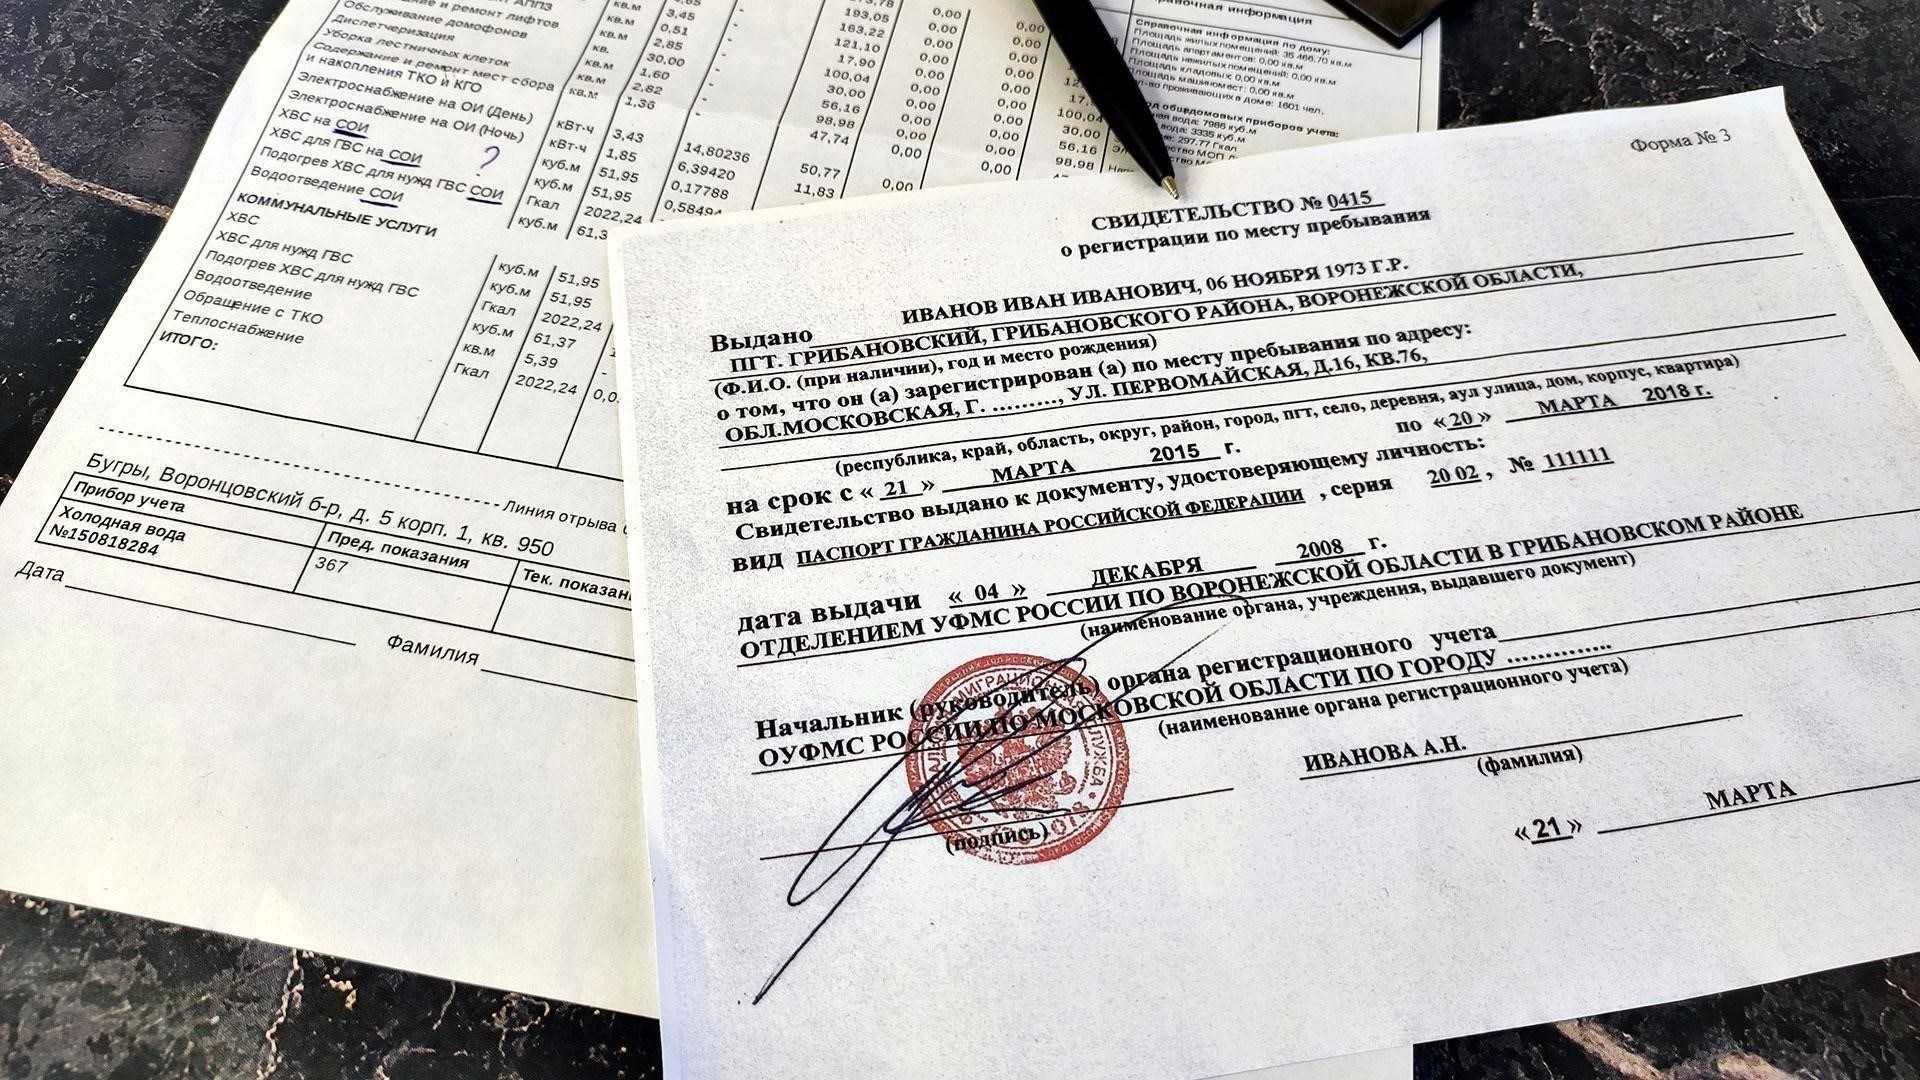 и ремонт лифтов
Обслуживание домофонов
Диспетчеризация
Уборка лестничных клеток
Содержание и ремонт мест сбора
и накопления ТКО и КГО
Электроснабжение на ОИ (День)
Электроснабжение на ОИ (Ночь)
ХВС на СОИ
ХВС для ГВС на СОИ ?
Подогрев ХВС для нужд ГВС СОИ
Водоотведение СОИ
КОММУНАЛЬНЫЕ УСЛУГИ
ХВС
ХВС для нужд ГВС
Подогрев ХВС для нужд ГВС
Водоотведение
Обращение с ТКО
Теплоснабжение
ИТОГО:
кв.м
кв.м
кв.
кв.м
кв.м
кВт·ч
кВт·ч
куб.м
куб.м
Гкал
куб.м
куб.м
куб.м
Гкал
куб.м
кв.м
Гкал
3,45
0,51
2,85
30,00
1,60
2,82
1,36
3,43
1,85
51,95
51,95
2022,24
61,3
51,95
51,95
2022,24
61,37
5,39
2022,24
14,80236
6,39420
0,17788
0,58494
193,05
163,22
121,10
17,90
100,04
30,00
56,16
98,98
47,74
50,77
11,83
0,00
0,00
0,00
0,00
0,00
0,00
0,00
0,00
0,00
0,00
100,04
30,00
56,16
98,98
Справочная информация по дому:
Площадь жилых помещений: 35 466,70 кв.м
Площадь апартаментов: 0,00 кв.м
Площадь нежилых помещений: 0,00 кв.м
Площадь кладовых: 0,00 кв.м
Площадь машиномест: 0,00 кв.м
проживающих в доме: 1601 чел.
общедомовых приборов учета:
вода: 7986 куб.м
вода: 3335 куб.м
297.77 Гкал
Линия отрыва
Бугры, Воронцовский б-р, д. 5 корп. 1, кв. 950
Прибор учета
Пред. показания
Тек. показан
Холодная вода
№150818284
367
Дата
Фамилия
Форма № 3
СВИДЕТЕЛЬСТВО № 0415
о регистрации по месту пребывания
ИВАНОВ ИВАН ИВАНОВИЧ, 06 НОЯБРЯ 1973 Г.Р.
Выдано
ПГТ. ГРИБАНОВСКИЙ, ГРИБАНОВСКОГО РАЙОНА, ВОРОНЕЖСКОЙ ОБЛАСТИ,
(Ф.И.О. (при наличии), год и место рождения)
о том, что он (а) зарегистрирован (а) по месту пребывания по адресу:
ОБЛ.МОСКОВСКАЯ, Г. .........., УЛ. ПЕРВОМАЙСКАЯ, Д.16, КВ.76,
(республика, край, область, округ, район, город, пгт, село, деревня, аул улица, дом, корпус, квартира)
на срок с « 21 » МАРТА 2015 г. по «20 » МАРТА 2018 г.
Свидетельство выдано к документу, удостоверяющему личность:
вид ПАСПОРТ ГРАЖДАНИНА РОССИЙСКОЙ ФЕДЕРАЦИИ , серия 20 02 , № 111111
дата выдачи « 04 » ДЕКАБРЯ 2008 г.
ОТДЕЛЕНИЕМ УФМС РОССИИ ПО ВОРОНЕЖСКОЙ ОБЛАСТИ В ГРИБАНОВСКОМ РАЙОНЕ
(наименование органа, учреждения, выдавшего документ)
Начальник (руководитель) органа регистрационного учета
ОУФМС РОССИИ ПО МОСКОВСКОЙ ОБЛАСТИ ПО ГОРОДУ ..............
(наименование органа регистрационного учета)
ИВАНОВА А.Н.
(фамилия)
(подпись)
«21 » МАРТА